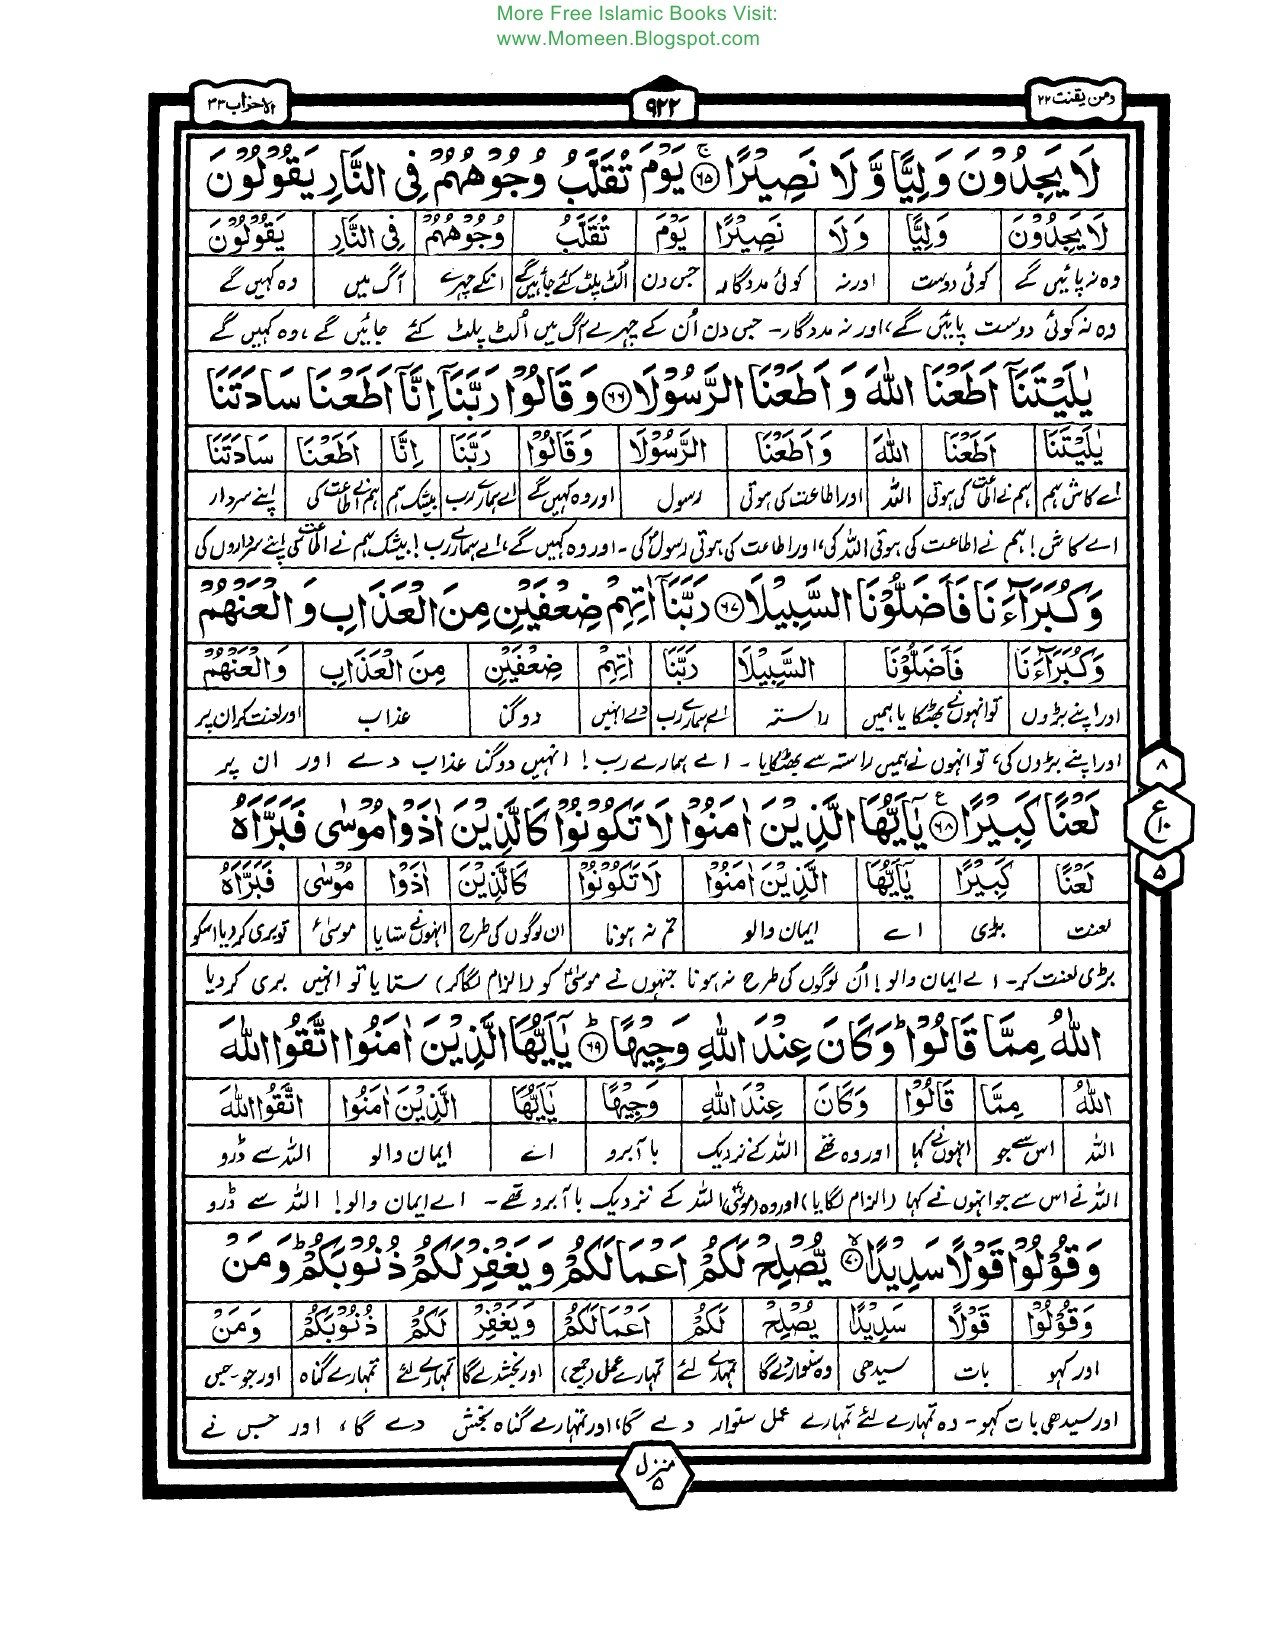 More Free Islamic Books Visit:
www.Momeen.Blogspot.com
ومن يقنت ٢٢
٩٢٢
الاحزاب ٣٣
لَا يَجِدُوْنَ وَلِيًّا وَّلَا نَصِيْرًا ۶۵ۚ يَوْمَ تُقَلَّبُ وُجُوْهُهُمْ فِى النَّارِ يَقُوْلُوْنَ
لَا يَجِدُوْنَ وَلِيًّا وَلَا نَصِيْرًا يَوْمَ تُقَلَّبُ وُجُوْهُهُمْ فِى النَّارِ يَقُوْلُوْنَ
وہ نہ پائیں گے کوئی دوست اور نہ کوئی مددگار جس دن اُلٹ پلٹ کئے جائیں گے انکے چہرے آگ میں وہ کہیں گے
وہ نہ کوئی دوست پائیں گے، اور نہ مددگار۔ جس دن اُن کے چہرے آگ میں اُلٹ پلٹ کئے جائیں گے، وہ کہیں گے
يٰلَيْتَنَآ اَطَعْنَا اللّٰهَ وَاَطَعْنَا الرَّسُوْلَا ۶۶ وَقَالُوْا رَبَّنَآ اِنَّآ اَطَعْنَا سَادَتَنَا
يٰلَيْتَنَا اَطَعْنَا اللّٰهَ وَاَطَعْنَا الرَّسُوْلَا وَقَالُوْا رَبَّنَا اِنَّا اَطَعْنَا سَادَتَنَا
اے کاش ہم ہم نے اطاعت کی ہوتی اللہ اور اطاعت کی ہوتی رسول اور وہ کہیں گے اے ہمارے رب بیشک ہم ہم نے اطاعت کی اپنے سردار
اے کاش! ہم نے اطاعت کی ہوتی اللہ کی، اور اطاعت کی ہوتی رسول کی۔ اور وہ کہیں گے، اے ہمارے رب! بیشک ہم نے اطاعت کی اپنے سرداروں کی
وَكُبَرَآءَنَا فَاَضَلُّوْنَا السَّبِيْلَا ۶۷ رَبَّنَآ اٰتِهِمْ ضِعْفَيْنِ مِنَ الْعَذَابِ وَالْعَنْهُمْ
وَكُبَرَآءَنَا فَاَضَلُّوْنَا السَّبِيْلَا رَبَّنَا اٰتِهِمْ ضِعْفَيْنِ مِنَ الْعَذَابِ وَالْعَنْهُمْ
اور اپنے بڑوں تو انہوں نے بھٹکایا ہمیں راستہ اے ہمارے رب دے انہیں دوگنا عذاب اور لعنت کر ان پر
اور اپنے بڑوں کی، تو انہوں نے ہمیں راستہ سے بھٹکایا۔ اے ہمارے رب! انہیں دوگنا عذاب دے اور ان پر
لَعْنًا كَبِيْرًا ۶۸ۧ يٰٓاَيُّهَا الَّذِيْنَ اٰمَنُوْا لَا تَكُوْنُوْا كَالَّذِيْنَ اٰذَوْا مُوْسٰى فَبَرَّاَهُ
لَعْنًا كَبِيْرًا يٰٓاَيُّهَا الَّذِيْنَ اٰمَنُوْا لَا تَكُوْنُوْا كَالَّذِيْنَ اٰذَوْا مُوْسٰى فَبَرَّاَهُ
لعنت بڑی اے ایمان والو تم نہ ہونا ان لوگوں کی طرح انہوں نے ستایا موسٰیؑ تو بری کر دیا اسکو
بڑی لعنت کر۔ اے ایمان والو! اُن لوگوں کی طرح نہ ہونا جنہوں نے موسٰیؑ کو (الزام لگا کر) ستایا تو انہیں بری کر دیا
اللّٰهُ مِمَّا قَالُوْا ؕ وَكَانَ عِنْدَ اللّٰهِ وَجِيْهًا ۶۹ؕ يٰٓاَيُّهَا الَّذِيْنَ اٰمَنُوا اتَّقُوا اللّٰهَ
اللّٰهُ مِمَّا قَالُوْا وَكَانَ عِنْدَ اللّٰهِ وَجِيْهًا يٰٓاَيُّهَا الَّذِيْنَ اٰمَنُوْا اتَّقُوا اللّٰهَ
اللہ اس سے جو انہوں نے کہا اور وہ تھے اللہ کے نزدیک باآبرو اے ایمان والو اللہ سے ڈرو
اللہ نے اس سے جو انہوں نے کہا (الزام لگایا) اور وہ (موسٰیؑ) اللہ کے نزدیک باآبرو تھے۔ اے ایمان والو! اللہ سے ڈرو
وَقُوْلُوْا قَوْلًا سَدِيْدًا ۷۰ۙ يُّصْلِحْ لَكُمْ اَعْمَالَكُمْ وَيَغْفِرْ لَكُمْ ذُنُوْبَكُمْ ؕ وَمَنْ
وَقُوْلُوْا قَوْلًا سَدِيْدًا يُصْلِحْ لَكُمْ اَعْمَالَكُمْ وَيَغْفِرْ لَكُمْ ذُنُوْبَكُمْ وَمَنْ
اور کہو بات سیدھی وہ سنوار دے گا تمہارے لئے تمہارے عمل (جمع) اور بخشدے گا تمہارے لئے تمہارے گناہ اور جو-جس
اور سیدھی بات کہو۔ وہ تمہارے لئے تمہارے عمل سنوار دے گا، اور تمہارے گناہ بخش دے گا، اور جس نے
٨
ع
١٠
٥
منزل
٥